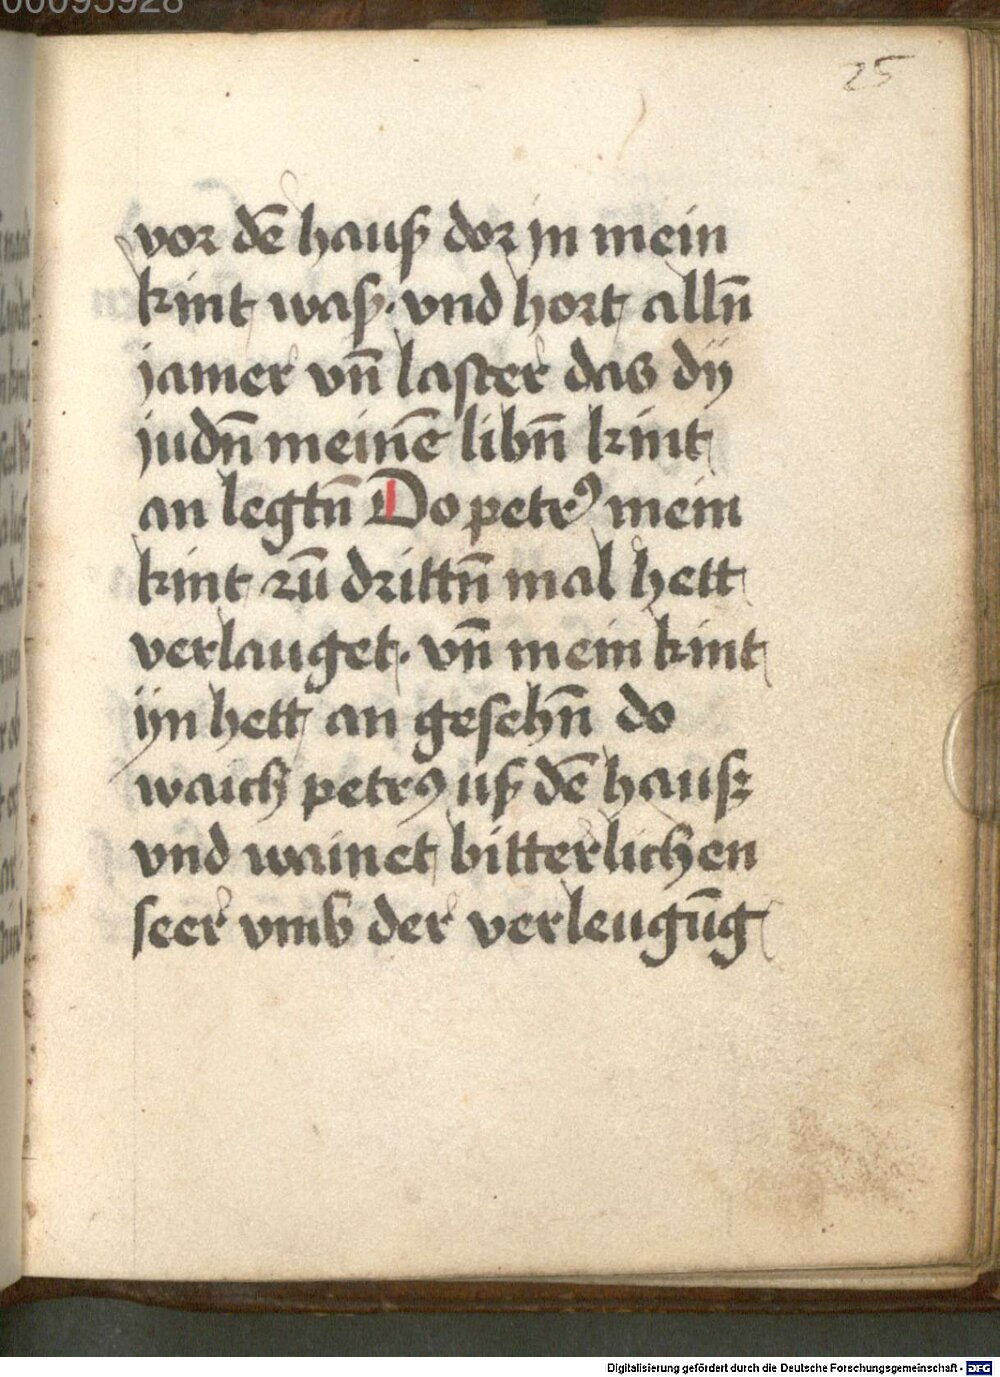 00095928
25
vor dē hauß dor jn mein
kint waß · vnd hort alln̄
jamer vn̄ laster das dij
judn̄ meinē libn̄ kint
an legtn̄ Do petrꝰ mein
kint zū drittn̄ mal hett
verlauget · vn̄ mein kint
ijn hett an gesehn̄ do
waich petrꝰ uß dē hauß
vnd wainet bitterlichen
seer vmb der verleugūg
Digitalisierung gefördert durch die Deutsche Forschungsgemeinschaft - DFG